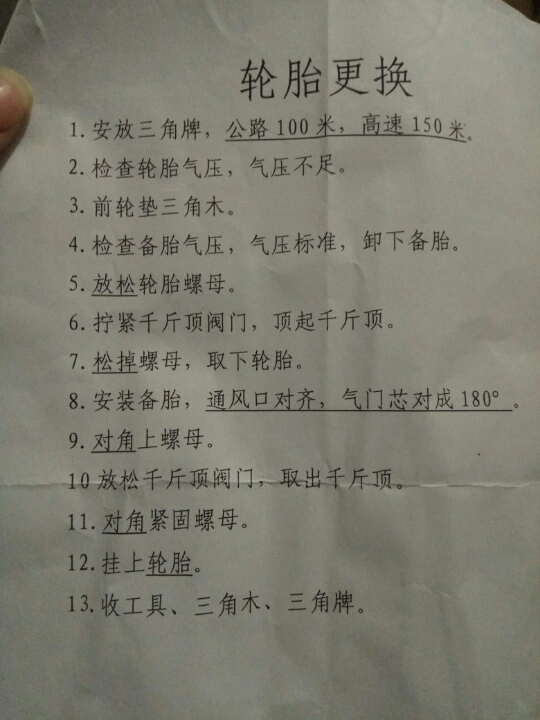 轮胎更换
1. 安放三角牌，公路100米，高速150米。
2. 检查轮胎气压，气压不足。
3. 前轮垫三角木。
4. 检查备胎气压，气压标准，卸下备胎。
5. 放松轮胎螺母。
6. 拧紧千斤顶阀门，顶起千斤顶。
7. 松掉螺母，取下轮胎。
8. 安装备胎，通风口对齐，气门芯对成180°。
9. 对角上螺母。
10 放松千斤顶阀门，取出千斤顶。
11. 对角紧固螺母。
12. 挂上轮胎。
13. 收工具、三角木、三角牌。